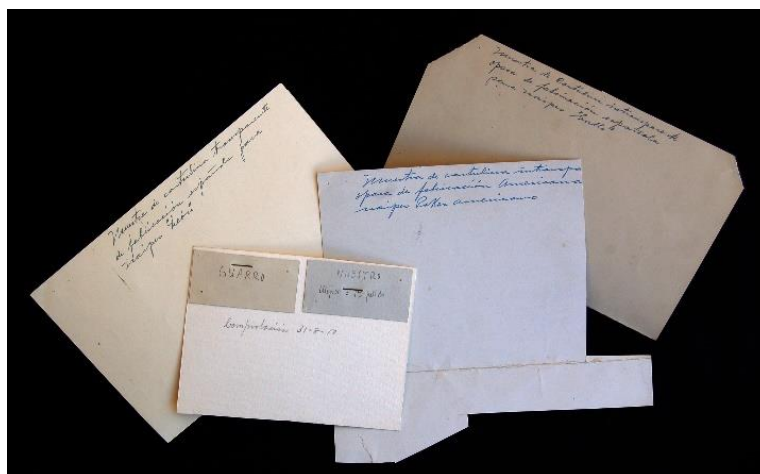 Muestra de cartulina transparente
de fabricación española para
naipes
Muestra de Cartulina intranspa
opaca de fabricación española
para naipes
Muestra de cartulina intranspa
opaca de fabricación Americana
naipes Poker americano
GUARRO
NUESTRO
Comprobación